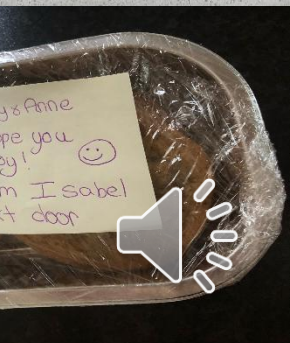 y & Anne
pe you
oy!
m Isabel
t door